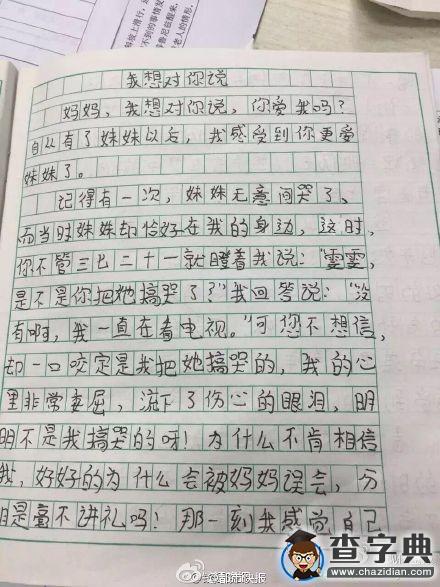 我想对你说
妈妈，我想对你说，你爱我吗？
自从有了妹妹以后，我感受到你更爱
妹妹了。
记得有一次，妹妹无意间哭了，
而当时妹妹却恰好在我的身边，这时，
你不管三七二十一就瞪着我说：“雯雯，
是不是你把她搞哭了？”我回答说：“没
有啊，我一直在看电视。”可您不想信，
却一口咬定是我把她搞哭的，我的心
里非常委屈，流下了伤心的眼泪，明
明不是我搞哭的呀！为什么不肯相信
我，好好的为什么会被妈妈误会，分
明是蛮不讲礼吗！那一刻我感觉自己
查字典
www.chazidian.com